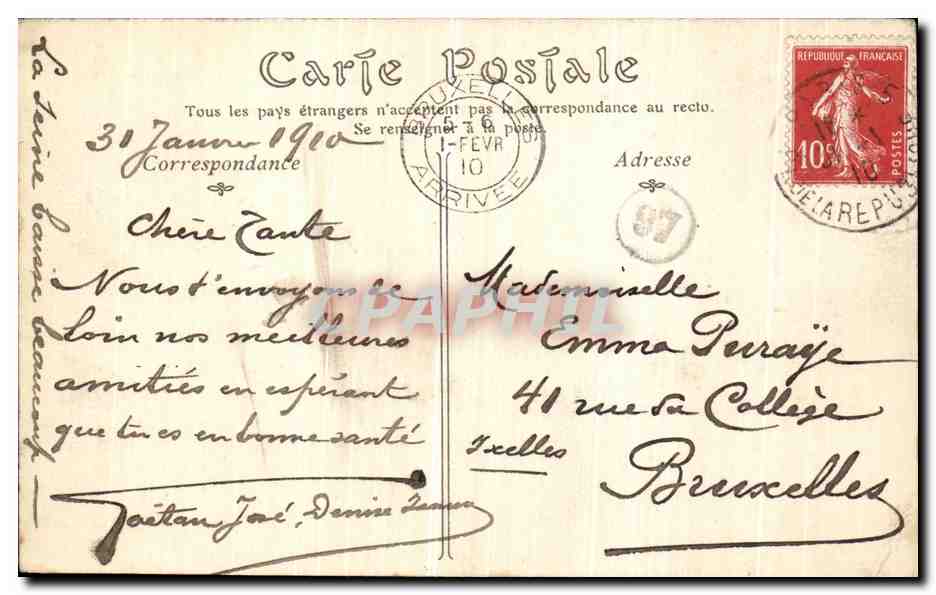 Carte Postale
Tous les pays étrangers n'acceptent pas la correspondance au recto.
Se renseigner à la poste.
31 Janvier 1910
Correspondance
Adresse
BRUXELLES
5-6
1-FEVR
10
ARRIVEE
REPUBLIQUE FRANÇAISE
10c
POSTES
37
Chère Tante
Nous t'envoyons de
loin nos meilleures
amitiés en espérant
que tu es en bonne santé
Gaëtan, José, Denise
La Seine baisse beaucoup —
Mademoiselle
Emma
41 rue du Collège
Ixelles
Bruxelles
CPAPHIL